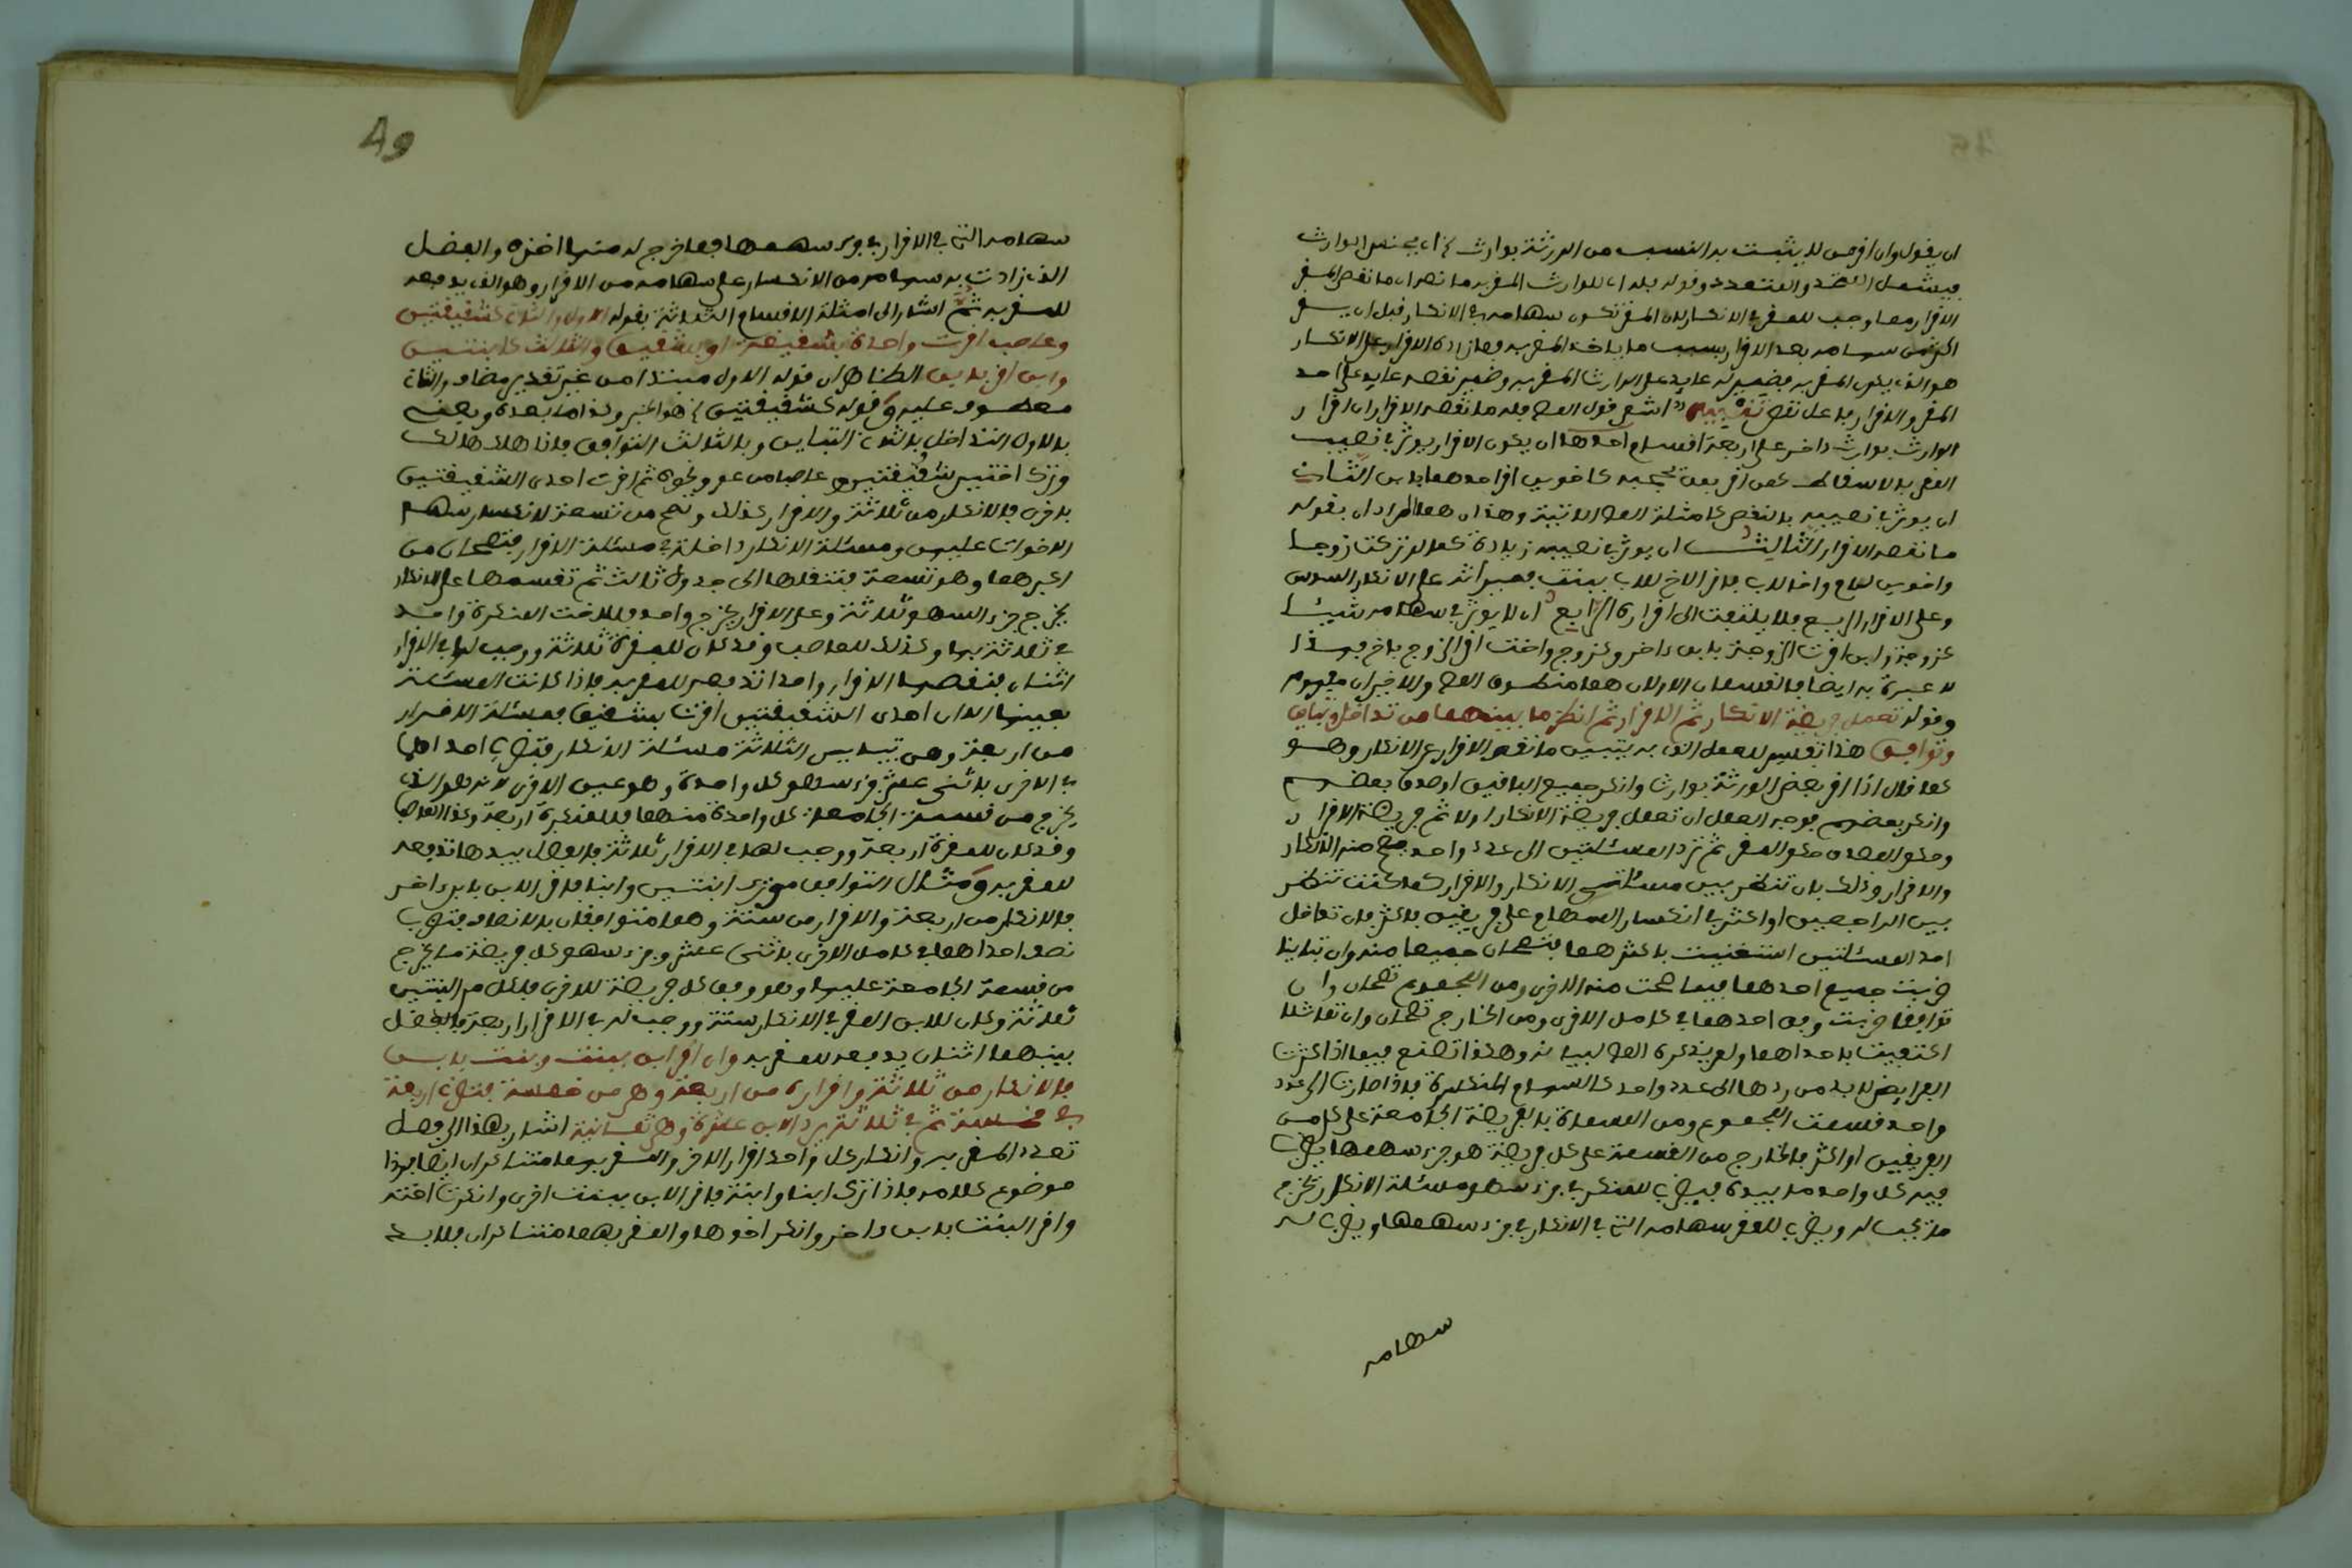 ان يقول وان اقر من لا يثبت به النسب من الورثة بوارث
فيشمل المتحد والمتعدد وقوله فله اي للوارث المقر به ما نقصه اي ما نقص المقر
الاقرار مما وجب للمقر في الانكار لان المقر تكون سهامه في الانكار قبل ان
اكثر من سهامه بعد الاقرار بسبب ما ياخذه المقر به فما زاده الاقرار على الانكار
هو الذي يكون للمقر به فضمير له عايد على الوارث المقر به وضمير نقصه عايد على احد
المقر والاقرار فاعل نقص تنبيه اشعر قول المص فله ما نقصه الاقرار ان اقرار
الوارث بوارث داخر على اربعة اقسام احدها ان يكون الاقرار يوثر في نصيب
المقر بالاسقاط كمن اقر بمن يحجبه كاخوين اقر احدهما بابن الثاني
ان يوثر في نصيبه بالنقص كامثلة المص الاتية وهذان هما المراد ان بقوله
ما نقصه الاقرار الثالث ان يوثر في نصيبه زيادة كما لو تركت زوجا
واخوين لام واخا لاب فاقر الاخ للاب ببنت فميراثه على الانكار السدس
وعلى الاقرار الربع فلا يلتفت الى اقراره الرابع ان لا يوثر في سهامه شيئا
كزوجة وابن اقرت الزوجة بابن داخر وكزوج واخت اقر الزوج باخ فهذا
لا عبرة به ايضا فالقسمان الاولان هما منطوق المص والاخيران مفهوم
وقوله تعمل فريضة الانكار ثم الاقرار ثم انظر ما بينهما من تداخل وتباين
وتوافق هذا تفسير للعمل الذي به يتبين ما نقصه الاقرار عن الانكار وهو
كما قال اذا اقر بعض الورثة بوارث وانكر جميع الباقين او صدق بعضهم
وانكر بعضهم فوجه العمل ان تعمل فريضة الانكار اولا ثم فريضة الاقرار
وحكم المصدق حكم المقر ثم ترد المسئلتين الى عدد واحد تصح منه الانكار
والاقرار وذلك بان تنظر بين مسئلتي الانكار والاقرار كما كنت تنظر
بين الراجعين او اكثر في انكسار السهام على فريقين فاكثر فان تداخل
احد المسئلتين استغنيت باكثرهما فتصحان جميعا منه وان تباينا
ضربت جميع احدهما فيما صحت منه الاخرى ومن المجموع تصحان وان
توافقا ضربت وفق احدهما في كامل الاخرى ومن الخارج تصحان وان تماثلا
اكتفيت باحداهما ولم يذكره المص لبيانه وهكذا تصنع فيما اذا كثرت
الفرايض لا بد من ردها الى عدد واحد كالسهام المنكسرة فاذا صارت الى عدد
واحد قسمت المجموع ومن المسماة بالفريضة الجامعة على كل من
الفريضتين او اكثر فالخارج من القسمة على كل فريضة هو جزء سهمها يضرب
فيه كل واحد ما بيده فيضرب للمنكر في جزء سهم مسئلة الانكار يخرج
ما يجب له ويضرب للمقر سهامه التي في الانكار في جزء سهمها ويضرب له
سهامه
49
سهامه التي في الاقرار في جزء سهمها فما خرج له منها اخذه والفضل
الذي زادت به سهامه من الانكار على سهامه من الاقرار وهو الذي يدفعه
للمقر به ثم اشار الى امثلة الاقسام الثلاثة بقوله الاول والثاني كشقيقتين
وعاصب اقرت واحدة بشقيقة او بشقيق والثالث كابنتين
وابن اقر بابن الظاهر ان قوله الاول مبتدا من غير تقدير مضاف والثاني
معطوف عليه وقوله كشقيقتين هو الخبر وكذا ما بعده ويعني
بالاول التداخل بالثاني التباين وبالثالث التوافق فاذا هلك هالك
وترك اختين شقيقتين وعاصبا من عم ونحوه ثم اقرت احدى الشقيقتين
باخرى فالانكار من ثلاثة والاقرار كذلك وتصح من تسعة لانكسار سهم
الاخوات عليهن ومسئلة الانكار داخلة في مسئلة الاقرار فتصحان من
اكبرهما وهو تسعة فتنقلها الى جدول ثالث ثم تقسمها على الانكار
يخرج جزء السهم ثلاثة وعلى الاقرار يخرج واحد فللاخت المنكرة واحد
في ثلاثة بها وكذلك للعاصب وقد كان للمقرة ثلاثة ووجب لها في الاقرار
اثنان فنقصها الاقرار واحدا تدفعه للمقر به فاذا كانت المسئلة
بعينها الا ان احدى الشقيقتين اقرت بشقيق فمسئلة الاقرار
من اربعة وهي تباين الثلاثة مسئلة الانكار فتضرب احداهما
في الاخرى باثنى عشر جزء سهم كل واحدة وهو عين الاخرى لانه هو الذي
يخرج من قسمة الجامعة كل واحدة منهما فللمنكرة اربعة وكذا العاصب
وقد كان للمقرة اربعة ووجب لها في الاقرار ثلاثة فالفضل بيدها تدفعه
للمقر به ومثال التوافق من ترك ابنتين وابنا فاقر الابن بابن داخر
فالانكار من اربعة والاقرار من ستة وهما متوافقان بالانصاف فتضرب
نصف احداهما في كامل الاخرى باثنى عشر وجزء سهم كل فريضة ما يخرج
من قسمة الجامعة عليها وهو وفق كل فريضة للاخرى فلكل من البنتين
ثلاثة وكان للابن المقر في الانكار ستة ووجب له في الاقرار اربعة فالفضل
بينهما اثنان يدفعه للمقر به وان اقر ابن ببنت وبنت بابن
فالانكار من ثلاثة واقراره من اربعة وهي من خمسة فتضرب اربعة
في خمسة ثم في ثلاثة يرد الابن عشرة وهي ثمانية اشار بهذا الى فصل
تعدد المقر به وانكار كل واحد اقرار الاخر والمقر بهما متناكران ايضا فهذا
موضوع كلامه فاذا ترك ابنا وابنة فاقر الابن ببنت اخرى وانكرت اخته
واقر البنت بابن داخر وانكر اخوها والمقر بهما متناكران فللابن